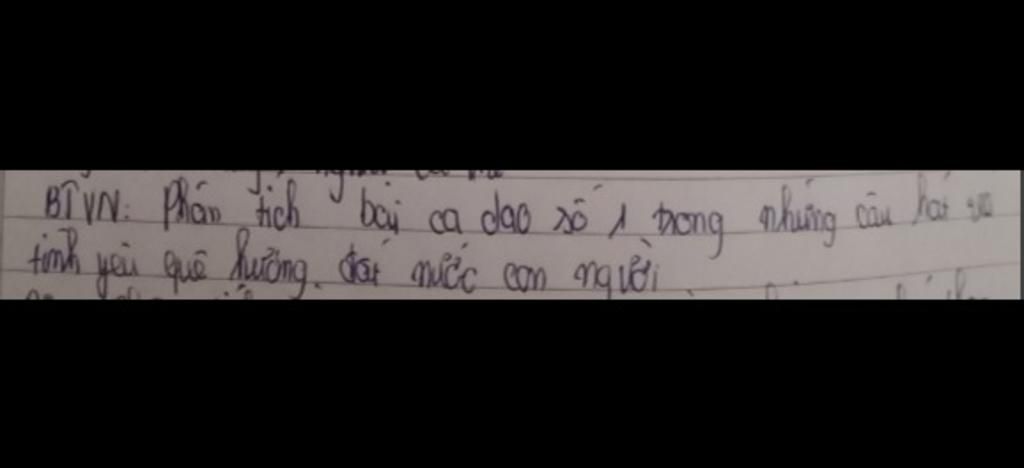 BTVN: Phân tích bài ca dao số 1 trong những câu hát về
tình yêu quê hương, đất nước con người.